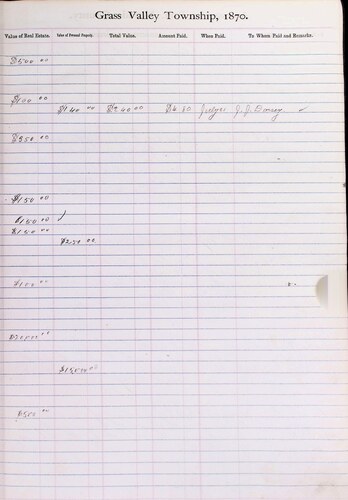 Grass Valley Township, 1870.
Value of Real Estate. Value of Personal Property. Total Value. Amount Paid. When Paid. To Whom Paid and Remarks.
$500 00
$100 00
$140 00 $240 00 J. J.
$350 00
$150 00
$150 00 ✓
$150 00
00
00
$1500 00
$500 00